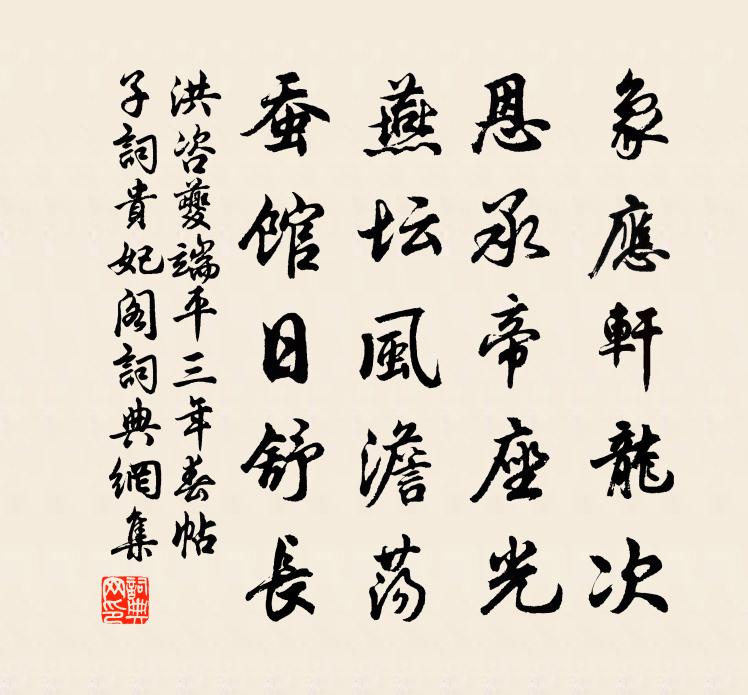 象應軒龍次
恩承帝座光
燕坛風澹荡
蚕馆日舒長
洪咨夔端平三年春帖
子詞貴妃阁詞典網集
詞典网印